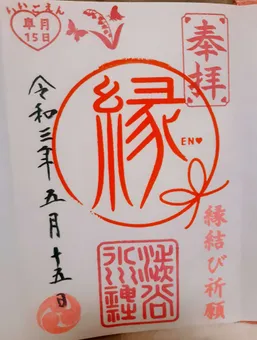 奉拝
いいごえん
皐月
15日
縁
EN♥
縁結び祈願
渋谷
氷川神社
令和三年五月十五日